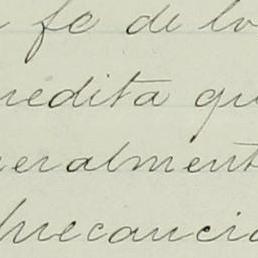 fe de lo
redita qu
neralment
precaucio